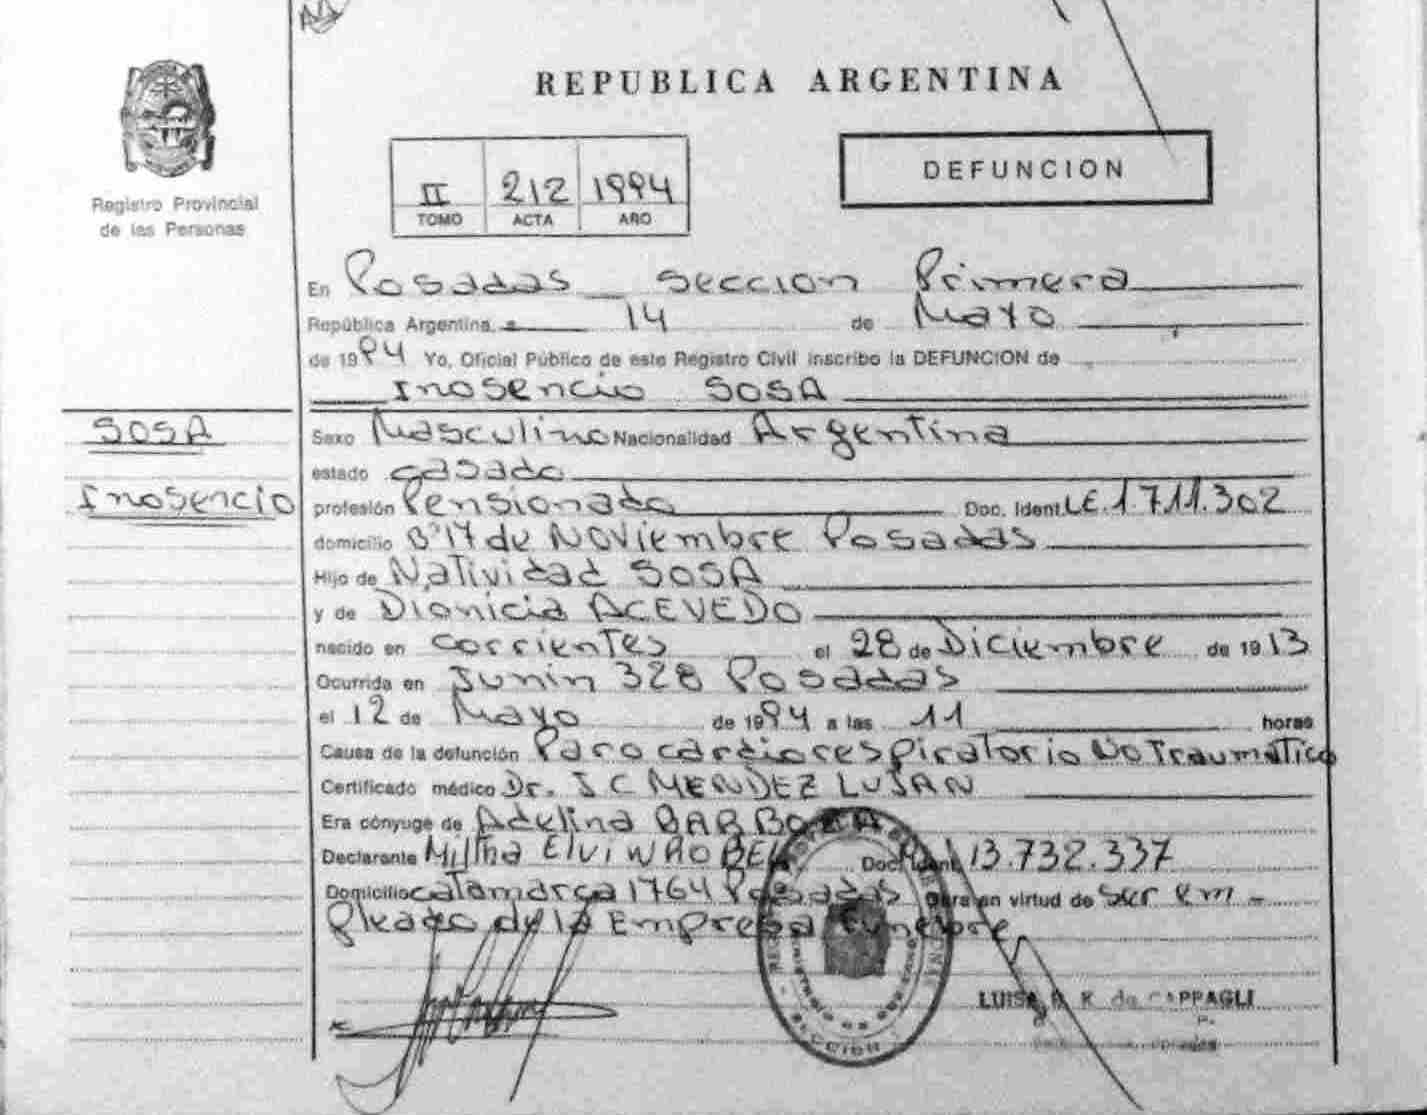 REPUBLICA ARGENTINA
Registro Provincial
de las Personas
II 212 1994
TOMO ACTA AÑO
DEFUNCION
En Posadas Seccion Primera
República Argentina, a 14 de Mayo
de 1994 Yo, Oficial Público de este Registro Civil inscribo la DEFUNCION de
Inosencio SOSA
SOSA
Inosencio
Sexo Masculino Nacionalidad Argentina
estado casado
profesión Pensionado Doc. Ident. LE. 1.711.302
domicilio Bº 17 de Noviembre Posadas
Hijo de Natividad SOSA
y de Dionicia ACEVEDO
nacido en Corrientes el 28 de Diciembre de 1913
Ocurrida en Junin 328 Posadas
el 12 de Mayo de 1994 a las 11 horas
Causa de la defunción Paro cardiorespiratorio No Traumatico
Certificado médico Dr. J C MENDEZ LUJAN
Era cónyuge de Adelina
Declarante Doc. Ident. 13.732.337
Domicilio Catamarca 1764 Posadas Obra en virtud de Ser em-
pleado de la Empresa Funebre
LUISA R. K. de CAPPAGLI